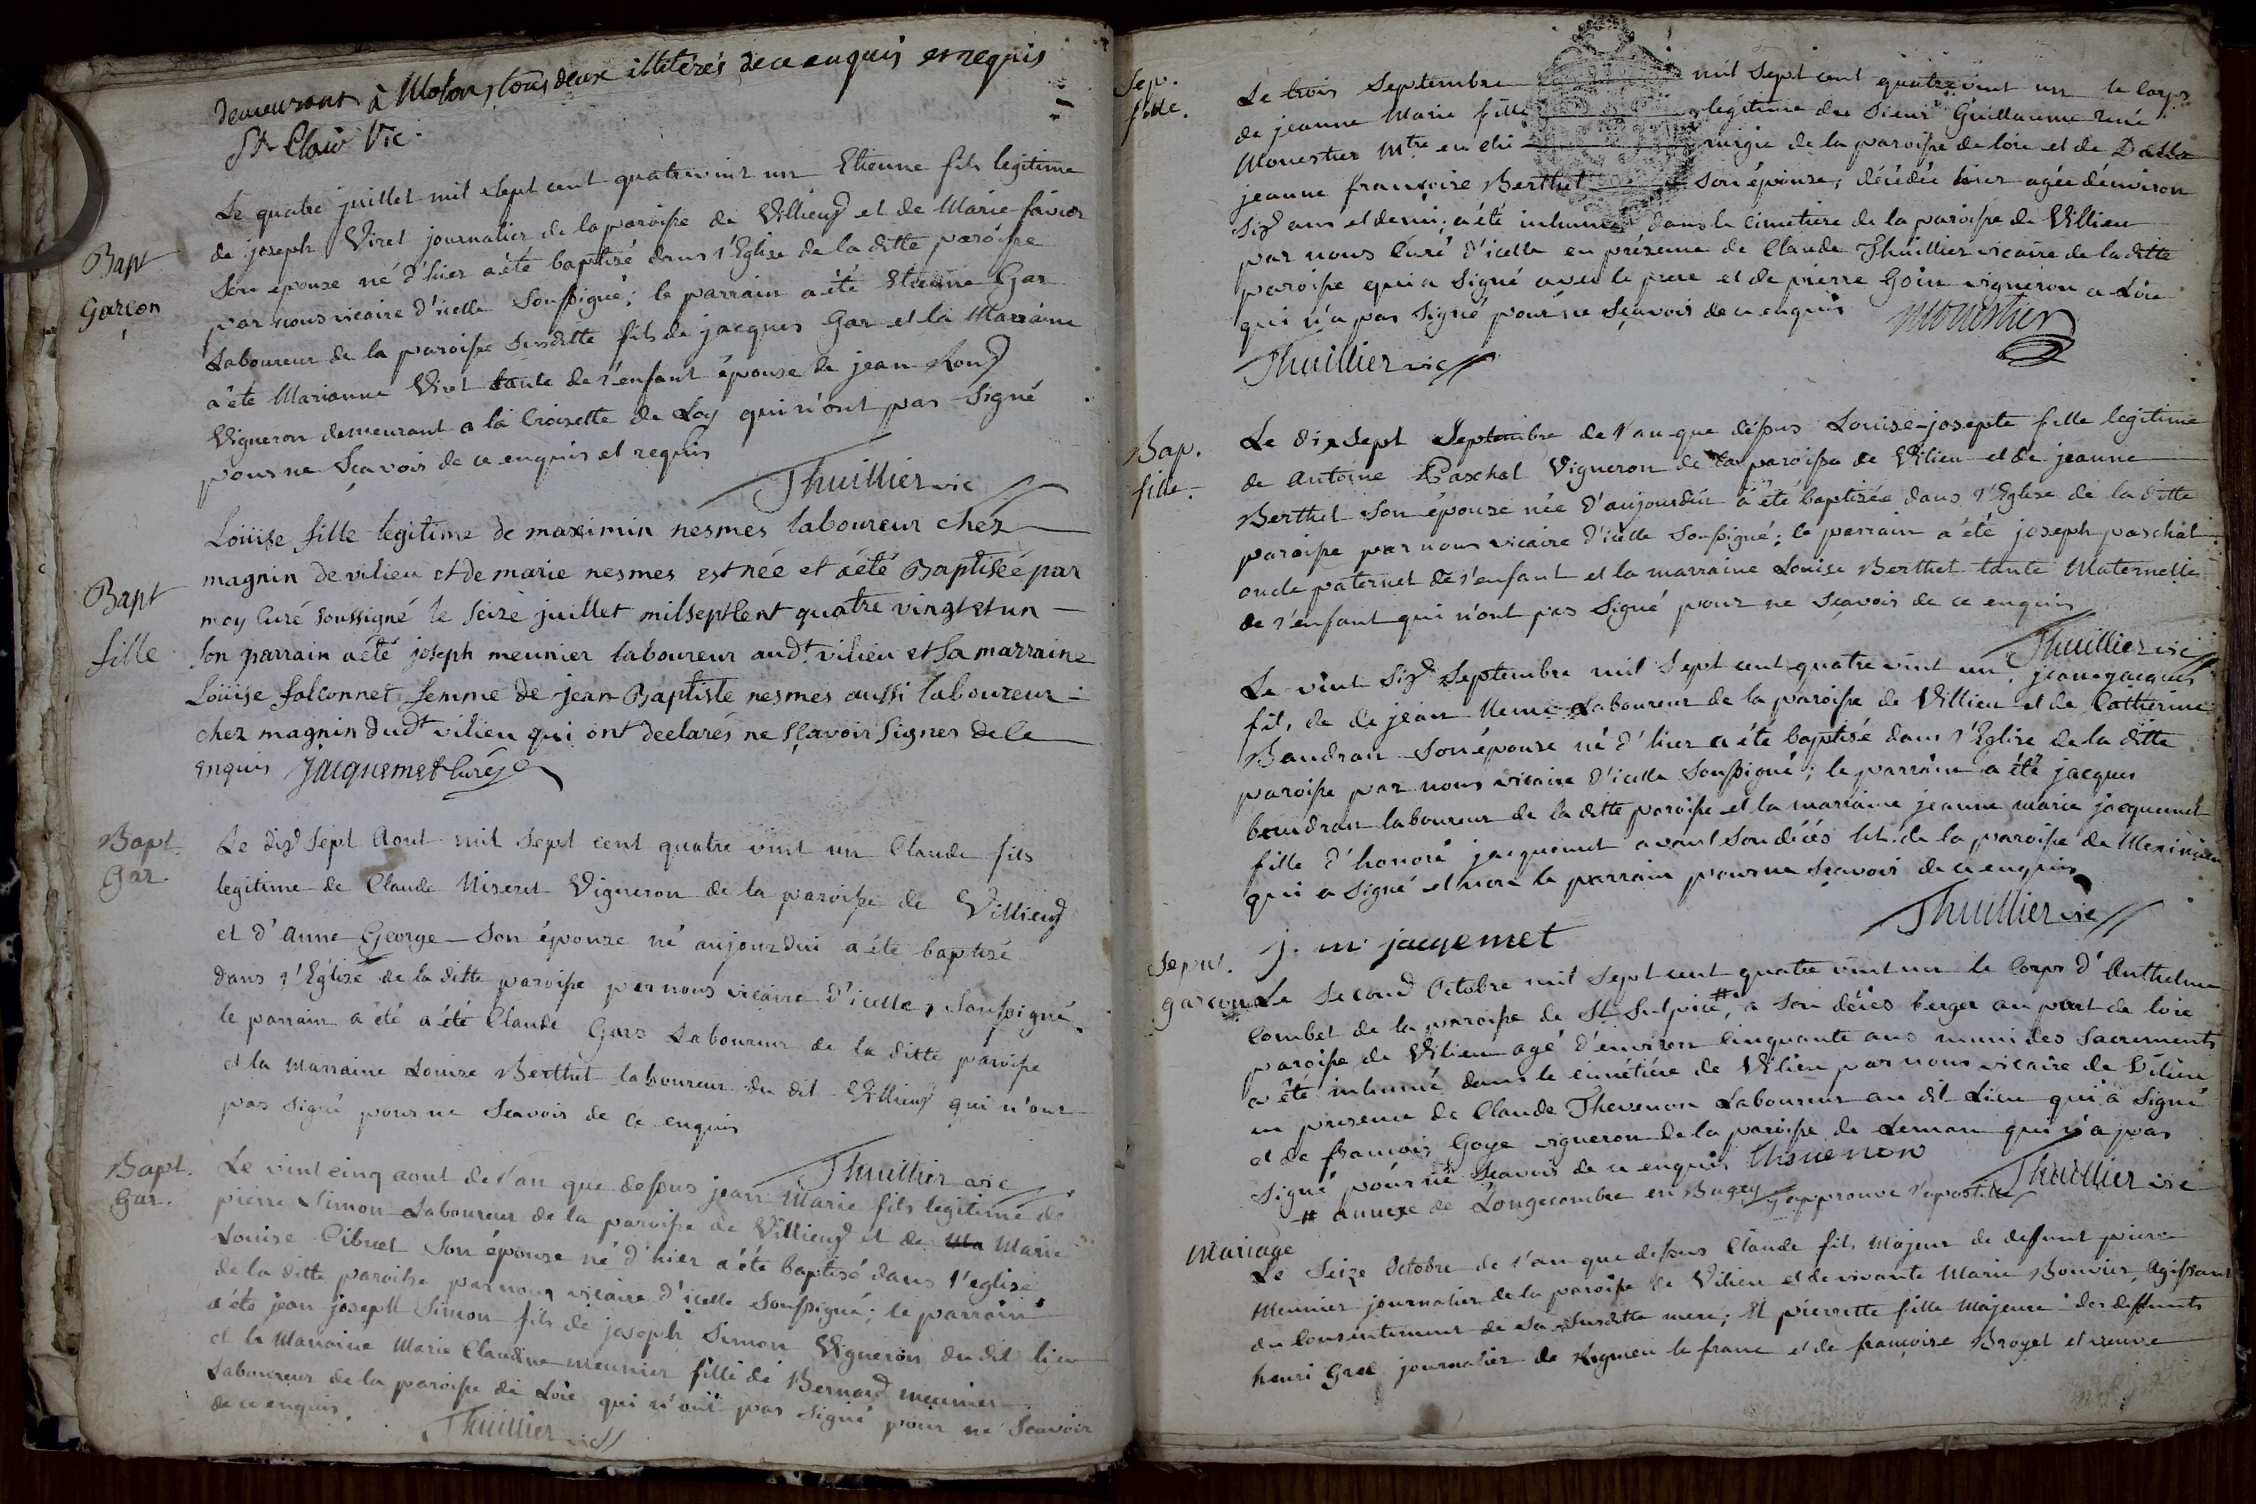 demeurant à Molon, tous deux illitérés de ce enquis et requis
St Clair Vic.
Bapt
Garçon
Le quatre juillet mil sept cent quatrevint un Etienne fils legitime
de joseph Viret journalier de la paroisse de Villieux et de Marie favier
son épouse né d'hier a été baptisé dans l'Eglise de la ditte paroisse
par nous vicaire d'icelle soussigné; le parrain a été Etienne Gar
Laboureur de la paroisse susditte fils de jacques Gar et la Marraine
a été Marianne Viret tante de l'enfant épouse de jean Roux
Vigneron demeurant a la Croisette de Loy qui n'ont pas signé
pour ne sçavoir de ce enquis et requis
Thuillier vic
Bapt
fille
Loüise fille legitime de maximin nesmes laboureur chez
magnin de vilieu et de marie nesmes est née et a été Baptisée par
moy Curé soussigné le seize juillet mil sept Cent quatre vingt et un
son parrain a été joseph meunier laboureur aud.t vilieu et sa marraine
Loüise falconnet femme de jean Baptiste nesmes aussi laboureur
chez magnin dud.t vilieu qui ont declarés ne sçavoir signer de Ce
enquis Jacquemet Curé
Bapt.
Gar.
Le dix sept Aout mil sept cent quatre vint un Claude fils
legitime de Claude Miseret Vigneron de la paroisse de Villieux
et d'anne George son épouse né aujourdui a été baptisé
dans l'Eglise de la ditte paroisse par nous vicaire d'icelle, soussigné
le parrain a été a été Claude Gars Laboureur de la ditte paroisse
et la Marraine Louise Berthet laboureur du dit Villieux qui n'ont
pas signé pour ne sçavoir de ce enquis
Thuillier vic
Bapt.
Gar.
Le vint cinq aout de l'an que dessus jean Marie fils legitime de
pierre Simon Laboureur de la paroisse de Villieux et de Ma Marie
Louise Cibuet son épouse né d'hier a été baptisé dans l'eglise
de la ditte paroisse par nous vicaire d'icelle soussigné; le parrain
a été jean joseph Simon fils de joseph Simon Vigneron du dit lieu
et la Marraine Marie Claudine meunier fille de Bernard meunier
Laboureur de la paroisse de Loie qui n'ont pas signé pour ne sçavoir
de ce enquis.
Thuillier vic
Sep.
fille.
Le trois Septembre mil sept cent quatrevint un le Corps
de jeanne Marie fille legitime de Sieur Guillaume René
Monestier Mtre en chirurgie de la paroisse de loie et de Delle
jeanne françoise Berthet son épouse, décédée hier agée d'environ
six ans et demi; a été inhumée dans le Cimetiere de la paroisse de Villieu
par nous Curé d'icelle en présence de Claude Thuillier vicaire de la ditte
paroisse qui a signé avec le pere et de pierre Goin vigneron a Loie
qui n'a pas signé pour ne sçavoir de ce enquis Monestier
Thuillier vic
Bap.
fille.
Le dix sept Septembre de l'an que dessus Louise-josepte fille legitime
de Antoine Paschal Vigneron de la paroisse de Vilieu et de jeanne
Berthet son épouse née d'aujourdui a été baptisée dans l'Eglise de la ditte
paroisse par nous vicaire d'icelle soussigné; le parrain a été joseph paschal
oncle paternel de l'enfant et la marraine Louise Berthet tante Maternelle
de l'enfant qui n'ont pas signé pour ne sçavoir de ce enquis
Thuillier vic
Le vint six Septembre mil sept cent quatre vint un, jean-jacques
fils de de jean Neme Laboureur de la paroisse de Villieu et de Catherine
Baudran son épouse né d'hier a été baptisé dans l'Eglise de la ditte
paroisse par nous vicaire d'icelle soussigné; le parrain a été jacques
baudran laboureur de la ditte paroisse et la marraine jeanne marie jacquemet
fille d'honoré jacquemet avant son décés de la paroisse de Meximieu
qui a signé et non le parrain pour ne sçavoir de ce enquis
Thuillier vic
j. m. jacqemet
Sepul.
garcon
Le Second Octobre mil sept cent quatre vint un le Corps d'Anthelme
Combet de la paroisse de St Sulpice #, a son décès berger au port de loie
paroisse de Vilieu agé d'environ Cinquante ans muni des Sacrements
a été inhumé dans le cimétiére de Vilieu par nous vicaire de Vilieu
en presence de Claude Thevenon Laboureur au dit Lieu qui a signé
et de françois Goye vigneron de la paroisse de Leman qui n'a pas
signé pour ne sçavoir de ce enquis Thevenon
Thuillier vic
# annexe de Longecombre en Bugey j'approuve l'apostille
Mariage
Le Seize Octobre de l'an que dessus Claude fils Majeur de deffunt pierre
Meunier journalier de la paroisse de Vilieu et de vivante Marie Bouvier, agissant
du Consentement de sa susditte mere; Et pierrette fille Majeure des deffunts
henri Gree journalier de Rigneu le franc et de françoise Broyet et veuve